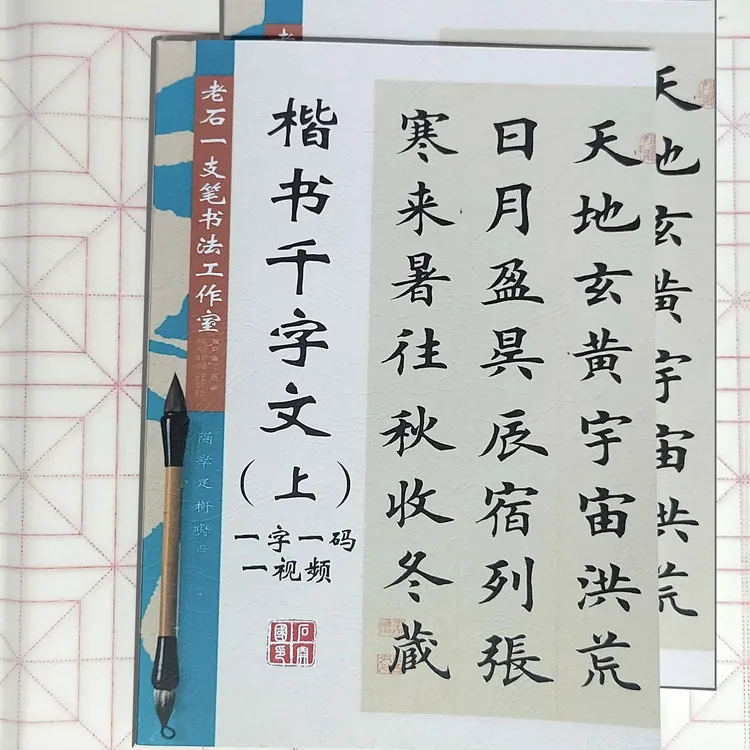 老石一支笔书法工作室
楷书千字文
(上)
一字一码
一视频
天地玄黄宇宙洪荒
日月盈昃辰宿列張
寒来暑往秋收冬藏
老
天地玄黄宇宙洪荒